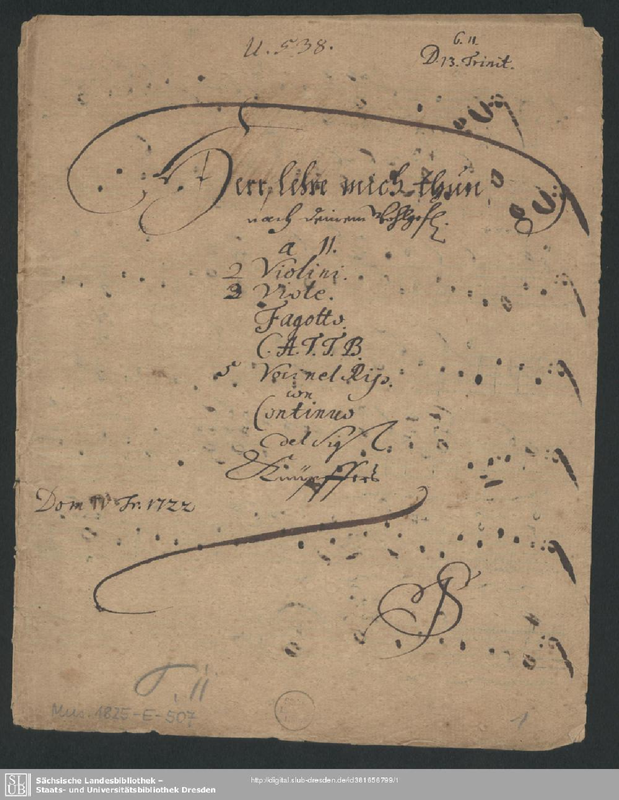 U. 538.
6. 11.
D 13. Trinit.
Herr, lehre mich thun
nach deinem Wohlgef.
a 11.
2 Violini.
3 Viole.
Fagotto.
C. A. T. T. B.
5 Voci nel Rip.
con
Continuo
del Sig.
Knüpffers
Dom IV Tr. 1722
11
Mus. 1825-E-507
1
SLUB
Sächsische Landesbibliothek –
Staats- und Universitätsbibliothek Dresden
http://digital.slub-dresden.de/id381656799/1